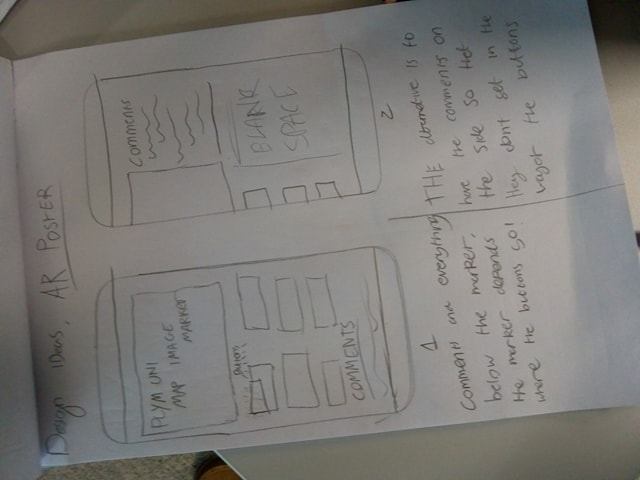 Design Ideas, AR POSTER
PLYM UNI
MAP IMAGE
MARKER
COMMENTS
1
Comments and everything
below the marker,
the marker depends
where the buttons go!
COMMENTS
BLANK
SPACE
2
THE alternative is to
have the comments on
the side so that
they dont get in the
way of the buttons